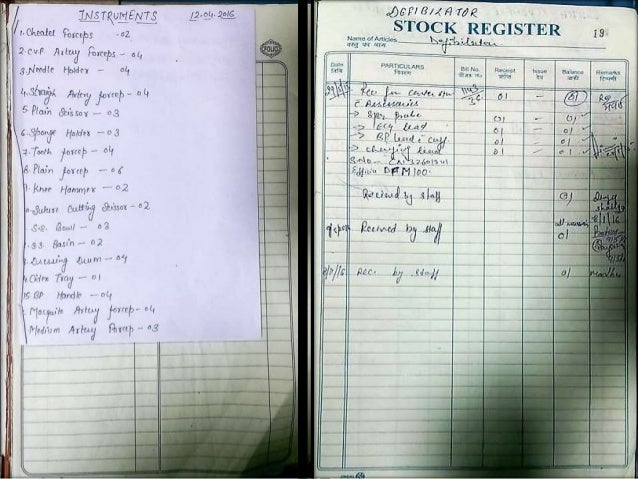 INSTRUMENTS 12.04.2016
1. Cheatel Forceps - 02
2. CVP Artery Forceps - 04
3. Needle Holder - 04
4. Straigh Artery forcep - 04
5 Plain Scissor - 03
6. Sponge Holder - 03
7. Tooth forcep - 04
8. Plain forcep - 06
9. Knee Hammer - 02
Suture Cutting Scissor - 02
S.S. Bowl - 03
S.S. Basin - 02
Dressing Drum - 04
Tray - 01
15. BP Handle - 04
Mosquito Artery forcep - 04
Medium Artery Forcep - 03
DEFIBILATOR
STOCK REGISTER 19
Name of Articles Defibilator
वस्तु का नाम
Date PARTICULARS Bill No. Receipt Issue Balance Remarks
तिथि विवरण प्राप्ति देय टिप्पणी
Rec from 01 01
Accessories
→ Spo2 probe 01 01
→ ECG lead 01 01
→ BP lead 01 01
→ charging lead 01 01
DFM100
Received by staff 01
8/1/16
Received by staff 01
Rec. by staff 01